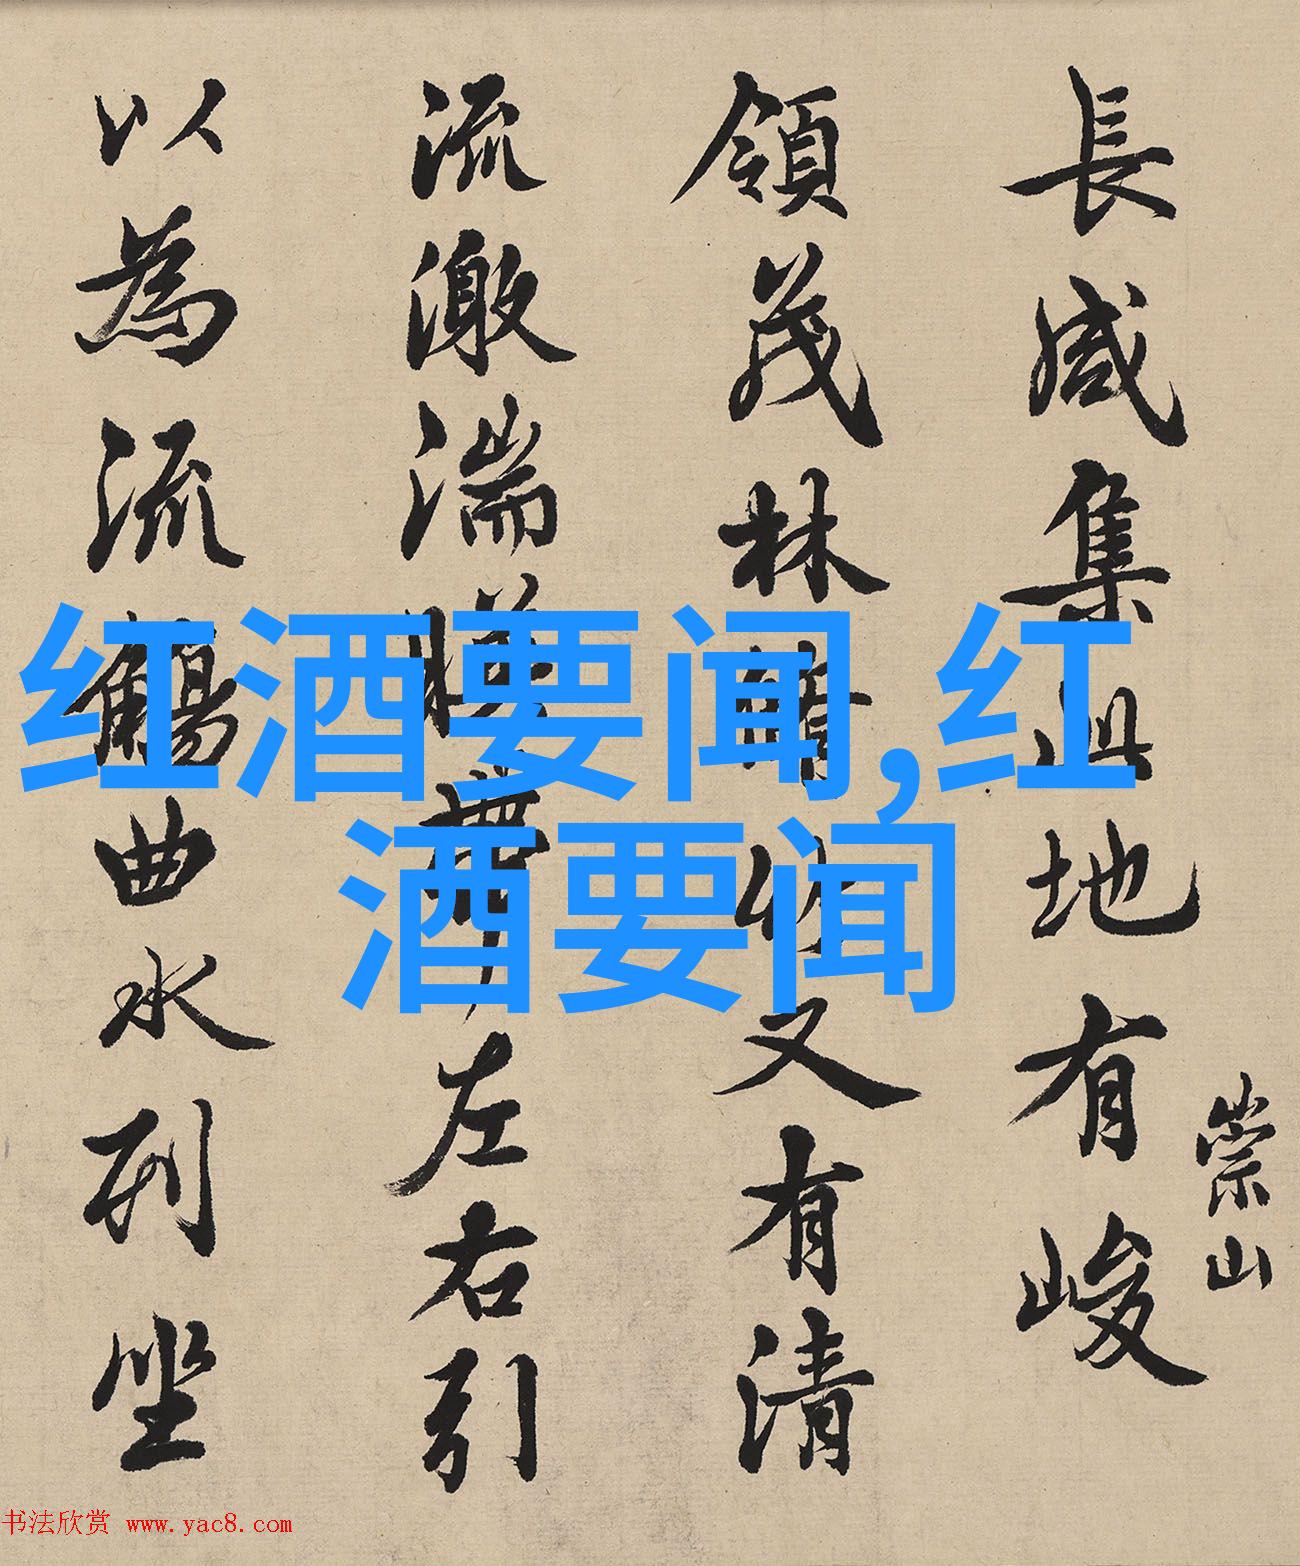 長咸集此地有峻
崇山
領茂林脩竹又有清
流激湍暎帶左右引
以為流觴曲水列坐
红酒要闻,红
酒要闻
书法欣赏 www.yac8.com